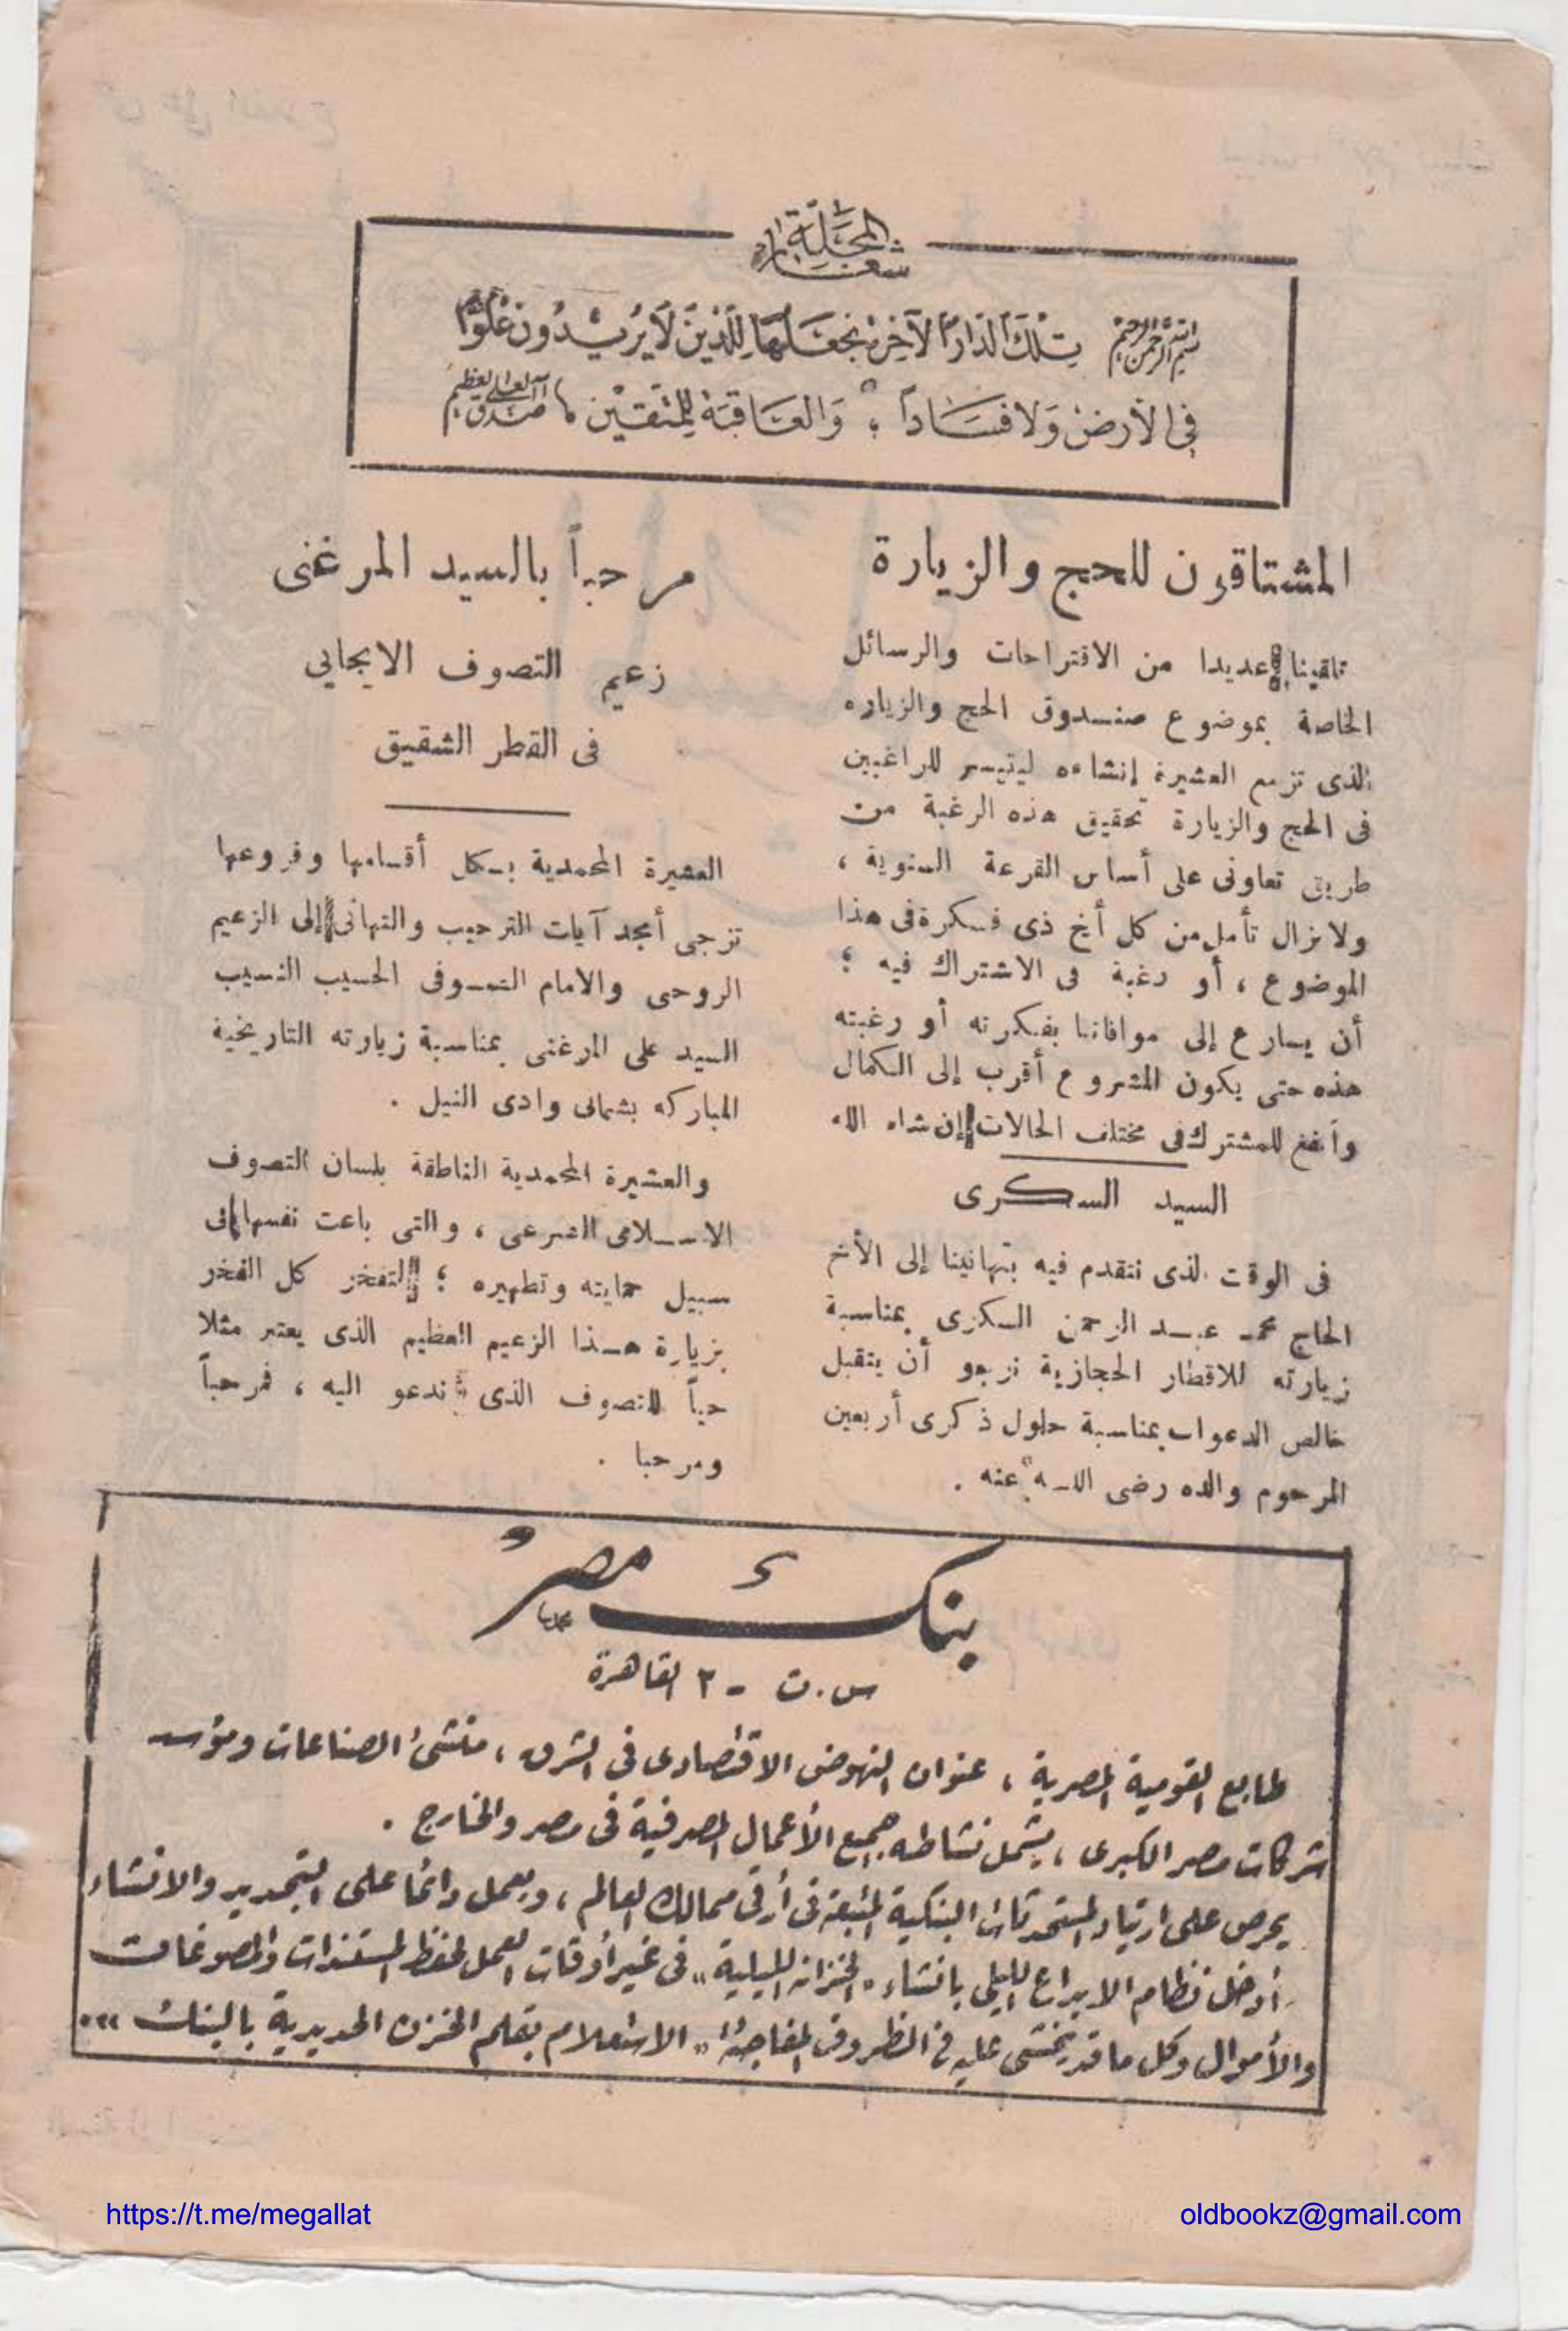 شعار المجلة
بسم الله الرحمن الرحيم تلك الدار الآخرة نجعلها للذين لا يريدون علوا
في الأرض ولا فسادا ؛ والعاقبة للمتقين صدق الله العلي العظيم
المشتاقون للحج والزيارة
تلقينا عديدا من الاقتراحات والرسائل
الخاصة بموضوع صندوق الحج والزياره
الذى تزمع العشيرة إنشاءه ليتيسر للراغبين
فى الحج والزيارة تحقيق هذه الرغبة من
طريق تعاونى على أساس القرعة السنوية ،
ولا نزال نأمل من كل أخ ذى فكرة فى هذا
الموضوع ، أو رغبة فى الاشتراك فيه ؛
أن يسارع إلى موافاتنا بفكرته أو رغبته
هذه حتى يكون المشروع أقرب إلى الكمال
وأنفع للمشترك فى مختلف الحالات إن شاء الله
السيد السكرى
فى الوقت الذى نتقدم فيه بتهانينا إلى الأخ
الحاج محمد عبد الرحمن السكرى بمناسبة
زيارته للاقطار الحجازية نرجو أن يتقبل
خالص الدعوات بمناسبة حلول ذكرى أربعين
المرحوم والده رضى الله عنه .
مرحباً بالسيد المرغنى
زعيم التصوف الايجابى
فى القطر الشقيق
العشيرة المحمدية بكل أقسامها وفروعها
تزجى أمجد آيات الترحيب والتهانى إلى الزعيم
الروحى والامام الصوفى الحسيب النسيب
السيد على المرغنى بمناسبة زيارته التاريخية
المباركه بشمالى وادى النيل .
والعشيرة المحمدية الناطقة بلسان التصوف
الاسلامى الشرعى ، والتى باعت نفسها فى
سبيل حمايته وتطهيره ؛ لتفخر كل الفخر
بزيارة هذا الزعيم العظيم الذى يعتبر مثلا
حياً للتصوف الذى ندعو اليه ، فمرحباً
ومرحبا .
بنك مصر
س.ت - ٢ القاهرة
طابع القومية المصرية ، عنوان النهوض الاقتصادى فى الشرق ، منشئ الصناعات ومؤسس
شركات مصر الكبرى ، يشمل نشاطه جميع الأعمال المصرفية فى مصر والخارج .
يحرص على ارتياد المستحدثات البنكية المتبعة فى أرقى ممالك العالم ، ويعمل دائما على التجديد والانشاء
أدخل نظام الايداع الليلى بانشاء « الخزانة الليلية » فى غير أوقات العمل لحفظ المستندات والمصوغات
والأموال وكل ما قد يخشى عليه فى الظروف المفاجئة « الاستعلام بقلم الخزن الحديدية بالبنك » .
https://t.me/megallat
oldbookz@gmail.com